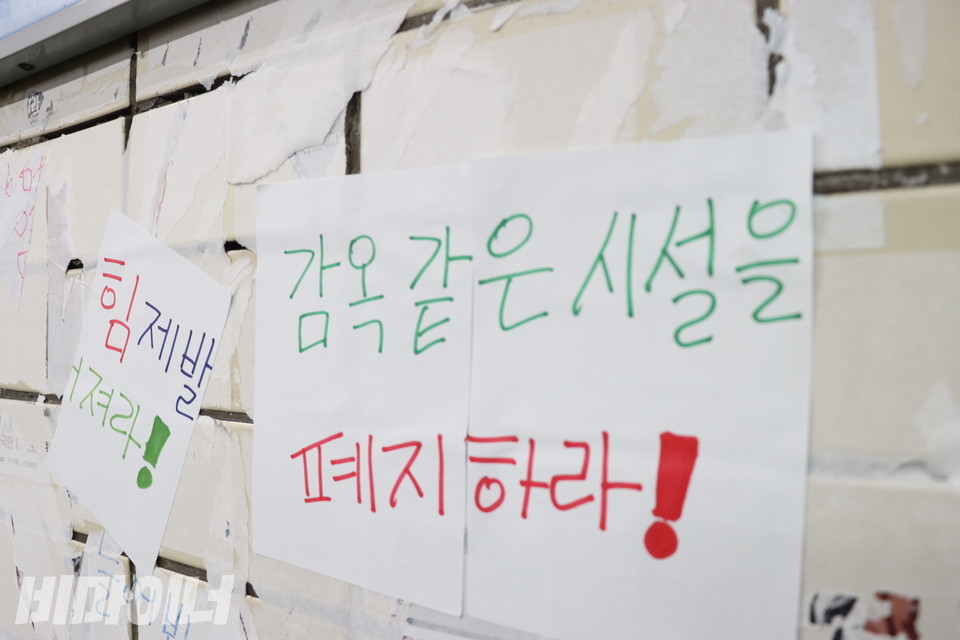 감옥 같은 시설을
폐지하라!
힘 제발
져라!
비마이너